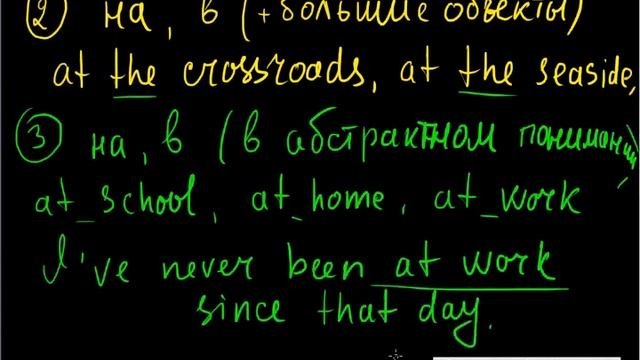 ② на, в (+ большие объекты)
at the crossroads, at the seaside,
③ на, в (в абстрактном понимании)
at_school, at_home, at_work
I've never been at work
since that day.